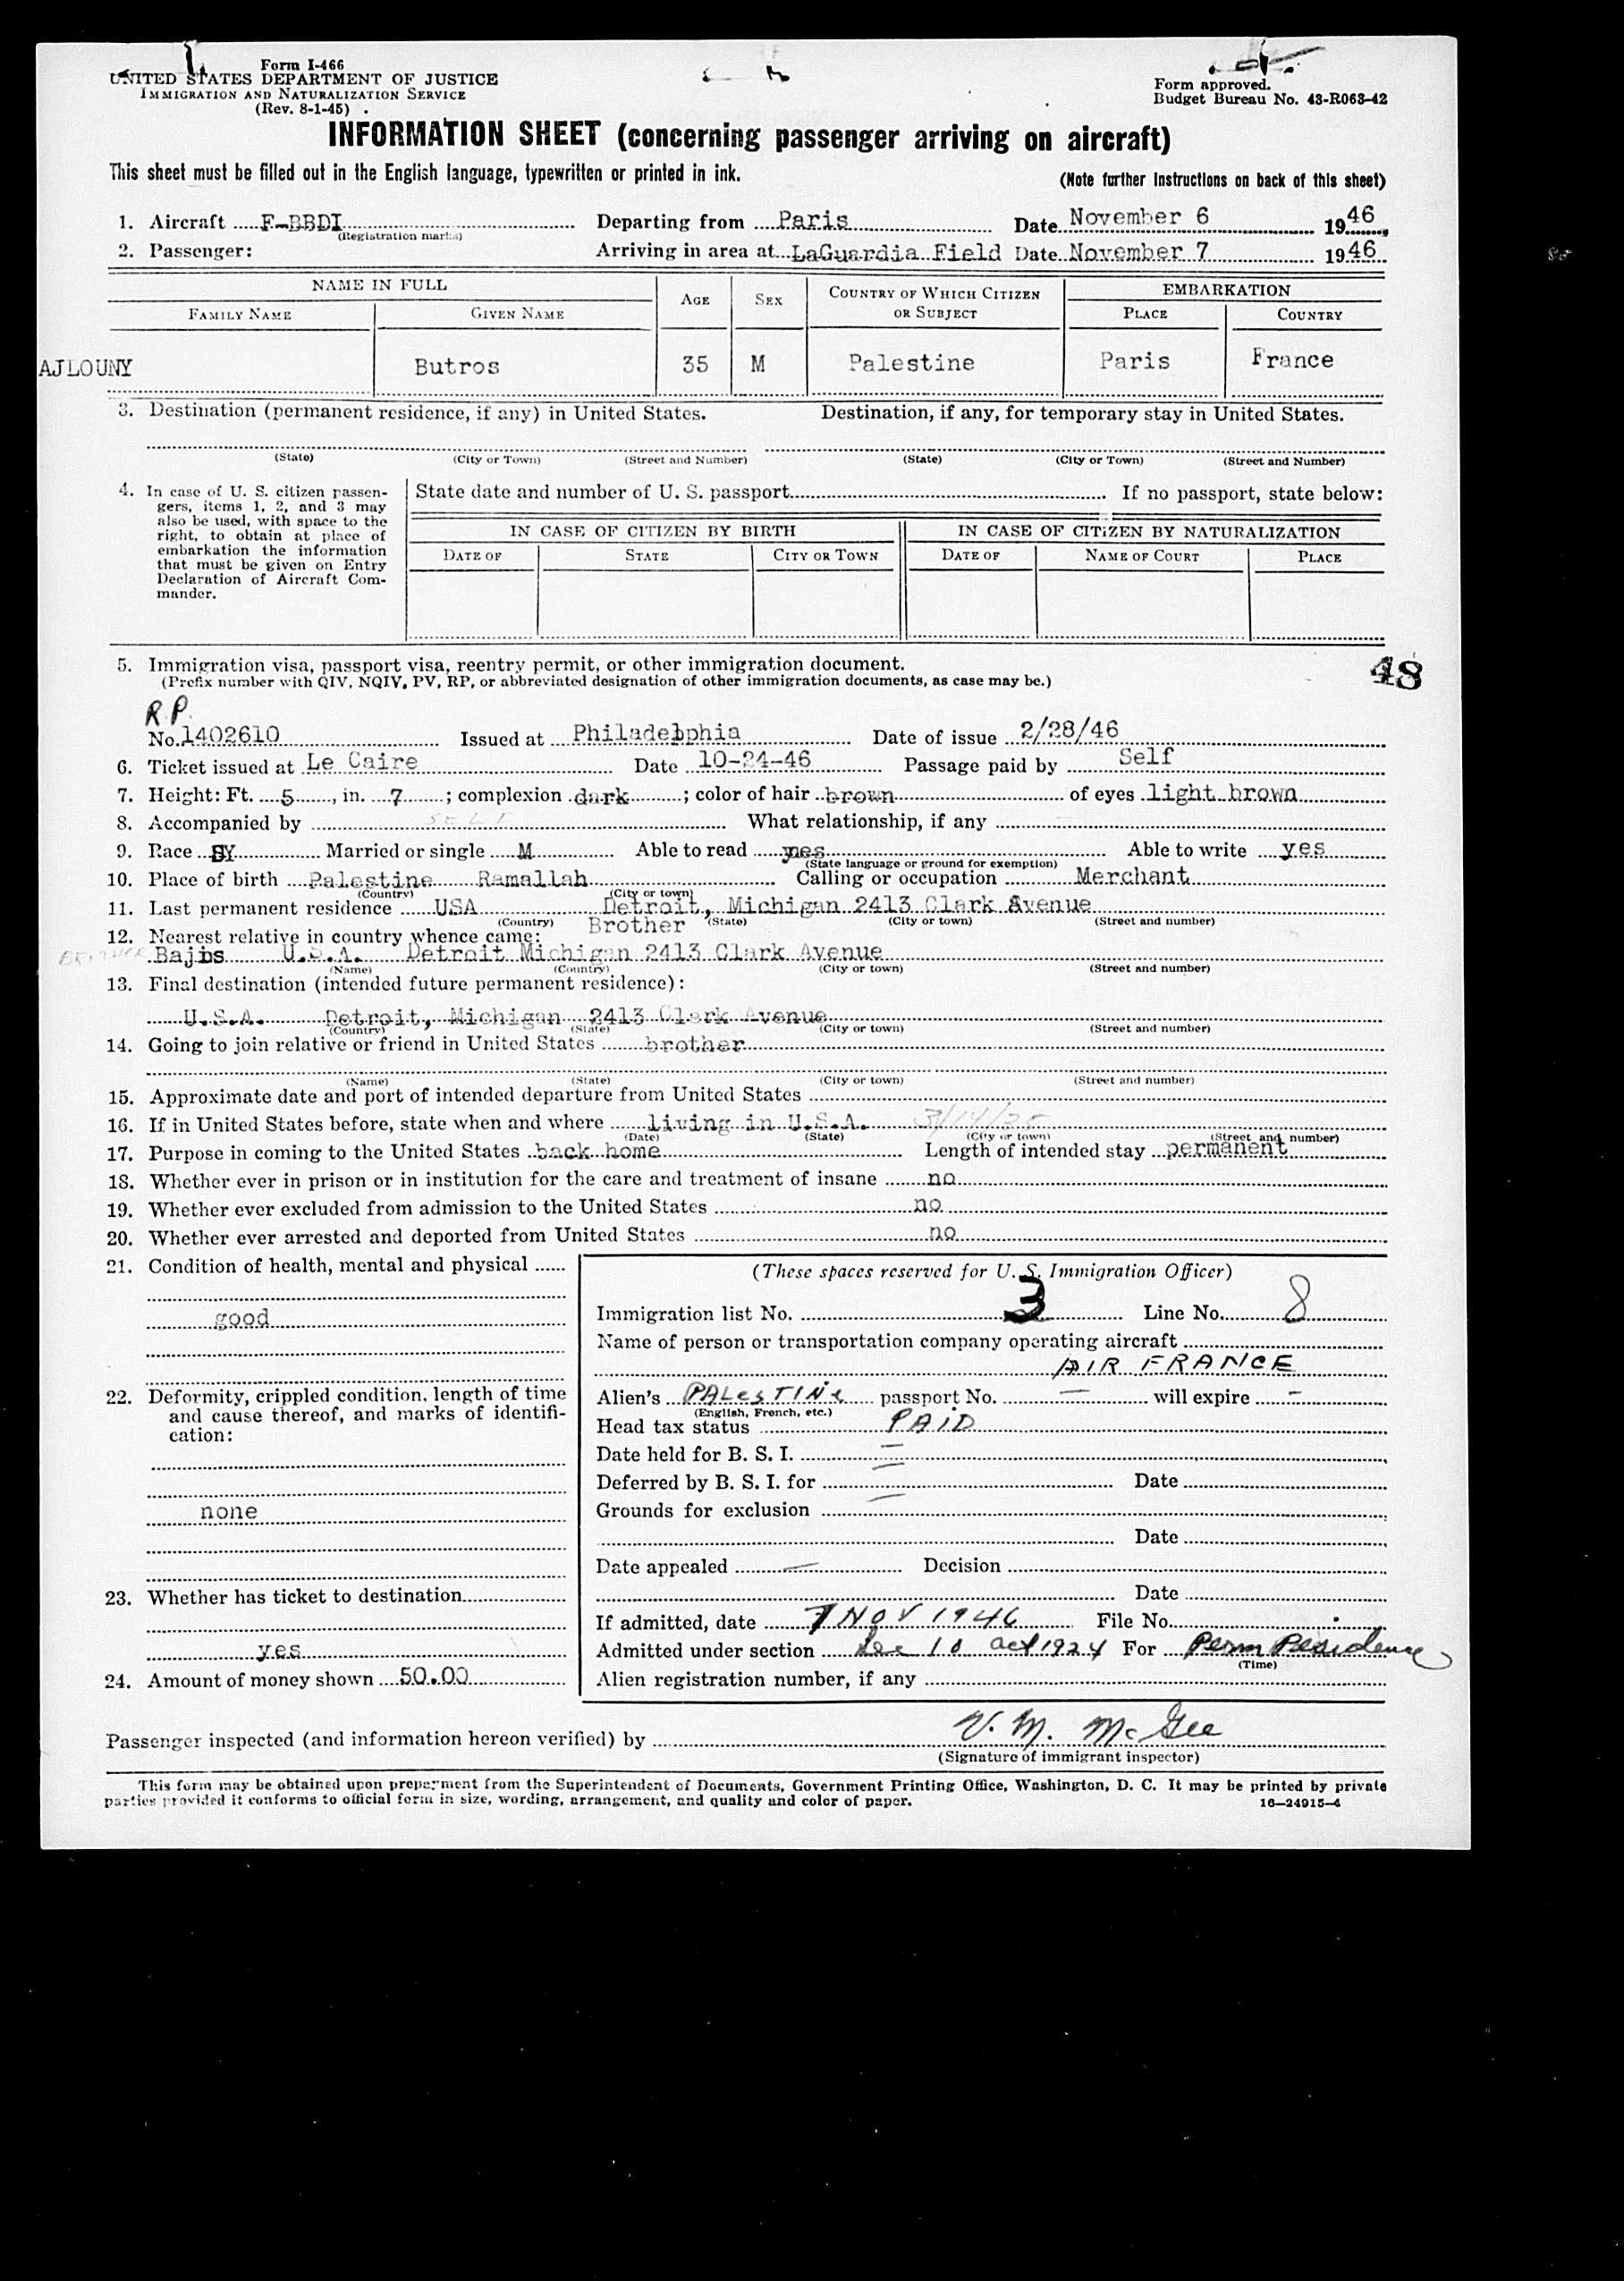 Form I-466
UNITED STATES DEPARTMENT OF JUSTICE
IMMIGRATION AND NATURALIZATION SERVICE
(Rev. 8-1-45)
Form approved.
Budget Bureau No. 43-R063-42
INFORMATION SHEET (concerning passenger arriving on aircraft)
This sheet must be filled out in the English language, typewritten or printed in ink.
(Note further instructions on back of this sheet)
1. Aircraft F-BBDI Departing from Paris Date November 6 1946
(Registration marks)
2. Passenger: Arriving in area at LaGuardia Field Date November 7 1946
NAME IN FULL AGE SEX COUNTRY OF WHICH CITIZEN OR SUBJECT EMBARKATION
FAMILY NAME GIVEN NAME PLACE COUNTRY
AJLOUNY Butros 35 M Palestine Paris France
3. Destination (permanent residence, if any) in United States. Destination, if any, for temporary stay in United States.
(State) (City or Town) (Street and Number) (State) (City or Town) (Street and Number)
4. In case of U. S. citizen passen-
gers, items 1, 2, and 3 may
also be used, with space to the
right, to obtain at place of
embarkation the information
that must be given on Entry
Declaration of Aircraft Com-
mander.
State date and number of U. S. passport If no passport, state below:
IN CASE OF CITIZEN BY BIRTH IN CASE OF CITIZEN BY NATURALIZATION
DATE OF STATE CITY OR TOWN DATE OF NAME OF COURT PLACE
5. Immigration visa, passport visa, reentry permit, or other immigration document.
(Prefix number with QIV, NQIV, PV, RP, or abbreviated designation of other immigration documents, as case may be.)
48
R.P.
No. 1402610 Issued at Philadelphia Date of issue 2/28/46
6. Ticket issued at Le Caire Date 10-24-46 Passage paid by Self
7. Height: Ft. 5, in. 7; complexion dark; color of hair brown of eyes light brown
8. Accompanied by SELF What relationship, if any
9. Race SY Married or single M Able to read yes Able to write yes
(State language or ground for exemption)
10. Place of birth Palestine Ramallah Calling or occupation Merchant
(Country) (City or town)
11. Last permanent residence USA Detroit, Michigan 2413 Clark Avenue
(Country) (State) (City or town) (Street and number)
12. Nearest relative in country whence came: Brother
BROTHER Bajis U.S.A. Detroit Michigan 2413 Clark Avenue
(Name) (Country) (City or town) (Street and number)
13. Final destination (intended future permanent residence):
U.S.A. Detroit, Michigan 2413 Clark Avenue
(Country) (State) (City or town) (Street and number)
14. Going to join relative or friend in United States brother
(Name) (State) (City or town) (Street and number)
15. Approximate date and port of intended departure from United States
16. If in United States before, state when and where living in U.S.A. 3/14/35
(Date) (State) (City or town) (Street and number)
17. Purpose in coming to the United States back home Length of intended stay permanent
18. Whether ever in prison or in institution for the care and treatment of insane no
19. Whether ever excluded from admission to the United States no
20. Whether ever arrested and deported from United States no
21. Condition of health, mental and physical
good
22. Deformity, crippled condition, length of time
and cause thereof, and marks of identifi-
cation:
none
23. Whether has ticket to destination
yes
24. Amount of money shown 50.00
(These spaces reserved for U. S. Immigration Officer)
Immigration list No. 3 Line No. 8
Name of person or transportation company operating aircraft
AIR FRANCE
Alien's PALESTINE passport No. — will expire –
(English, French, etc.)
Head tax status PAID
Date held for B. S. I. —
Deferred by B. S. I. for — Date
Grounds for exclusion —
Date
Date appealed — Decision
Date
If admitted, date 7 NOV 1946 File No.
Admitted under section Sec 10 act 1924 For Perm Residence
(Time)
Alien registration number, if any
Passenger inspected (and information hereon verified) by V. M. McGee
(Signature of immigrant inspector)
This form may be obtained upon prepayment from the Superintendent of Documents, Government Printing Office, Washington, D. C. It may be printed by private
parties provided it conforms to official form in size, wording, arrangement, and quality and color of paper.
16—24915-4